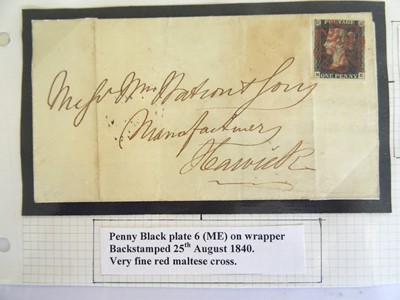 POSTAGE
M E
ONE PENNY
Messrs Wm Watson & Sons
Manufacturers
Hawick
Penny Black plate 6 (ME) on wrapper
Backstamped 25th August 1840.
Very fine red maltese cross.